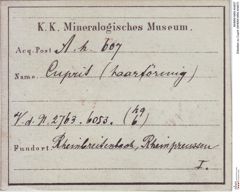 K. K. Mineralogisches Museum.
Acq. Post A. h. 607
Name: Cuprit (haarförmig)
V. d. N. 2763. 6053.
Fundort Rheinbreitenbach, Rheinpreussen
I.